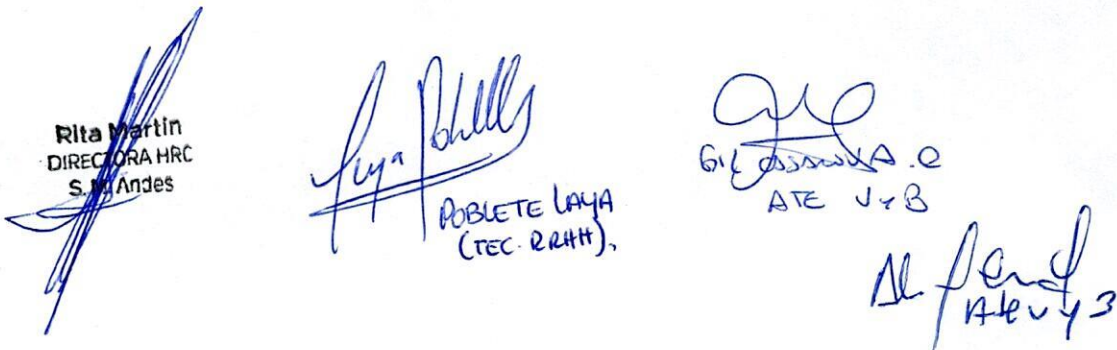 Rita Martin
DIRECTORA HRC
S. M. Andes
POBLETE LAYA
(TEC. RRHH).
GIL
ATE V y B
Ate v y B